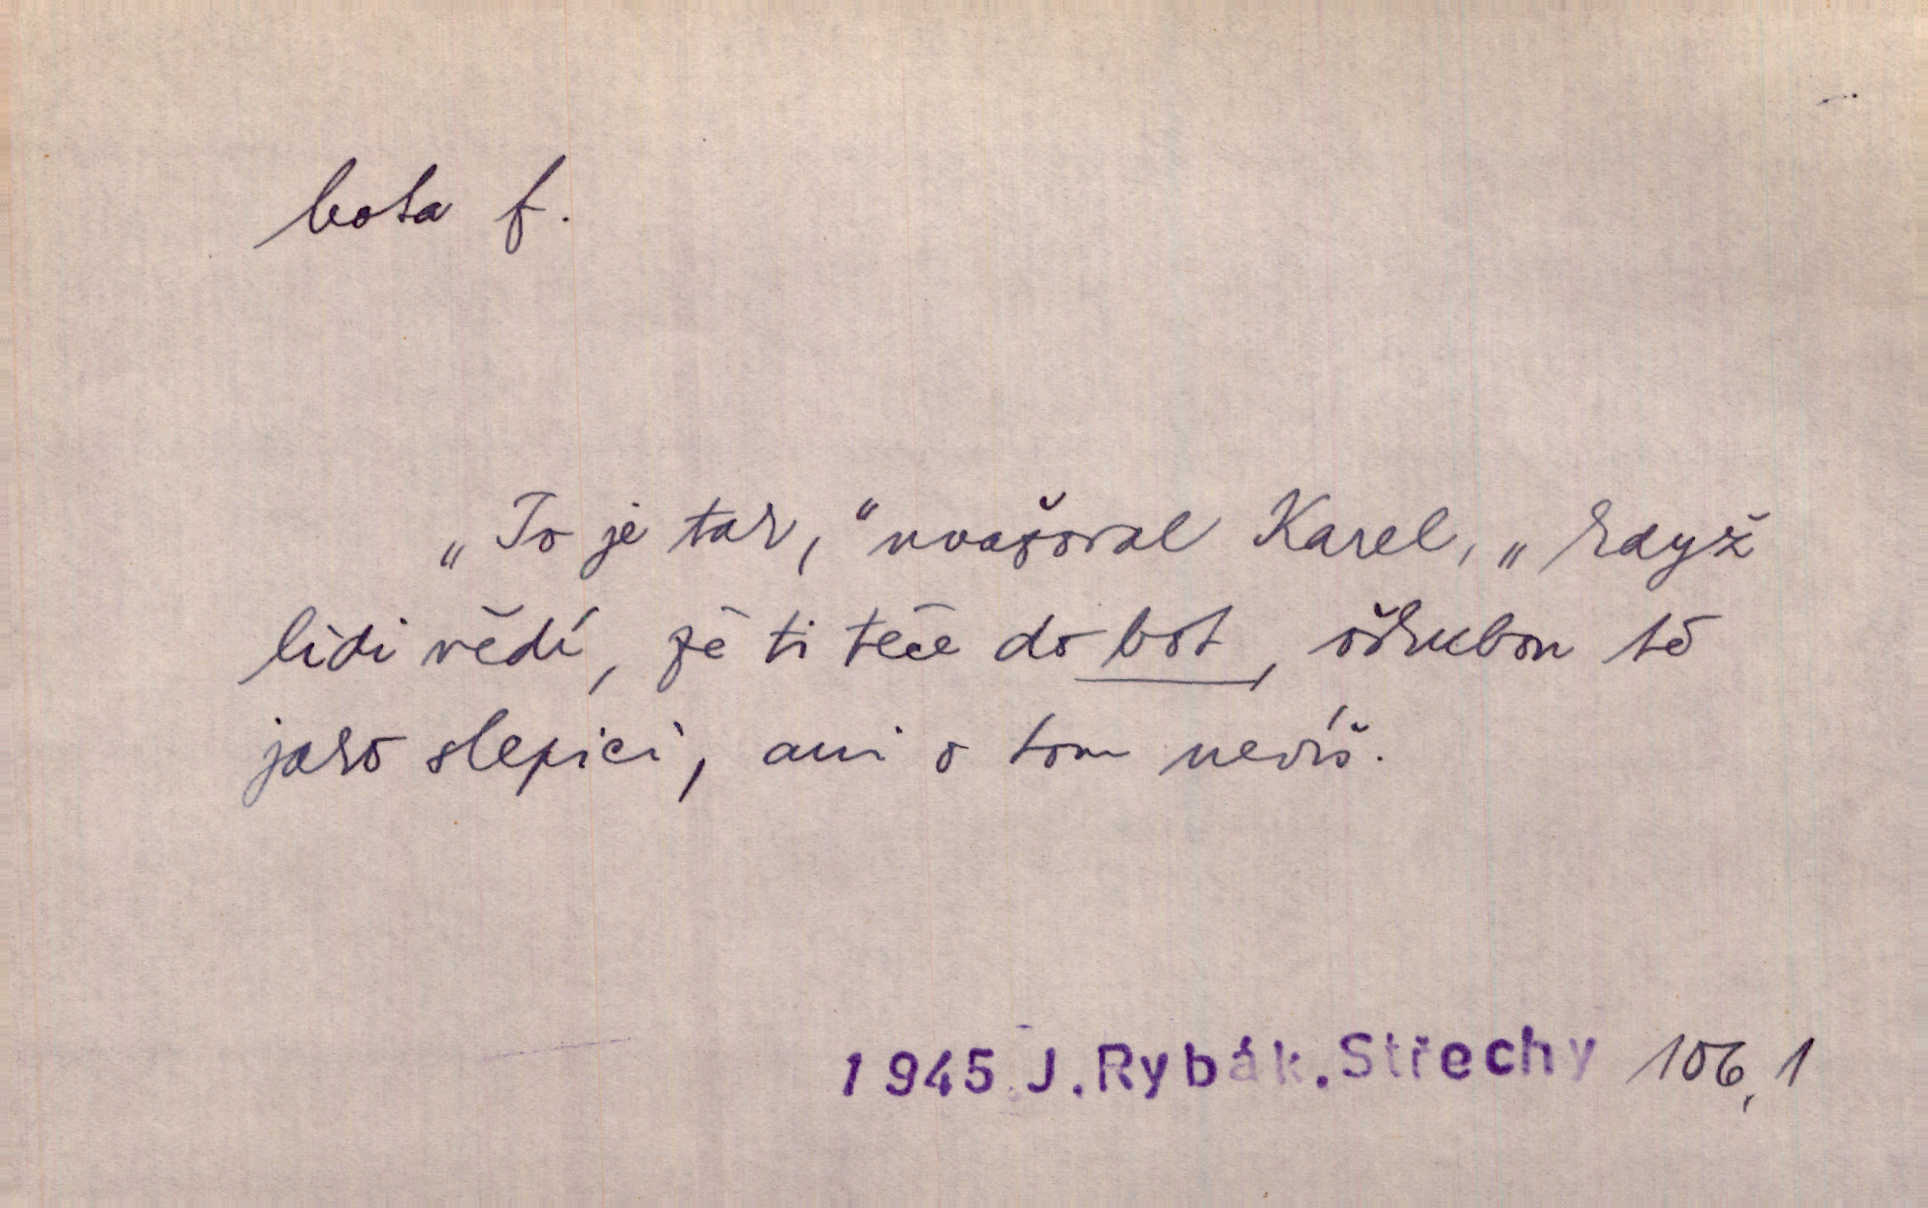 bota f.
„To je tak,“ uvažoval Karel, „když
lidi vědí, že ti teče do bot, oškubou tě
jako slepici, ani o tom nevíš.
1945 J.Rybák.Střechy 106,1